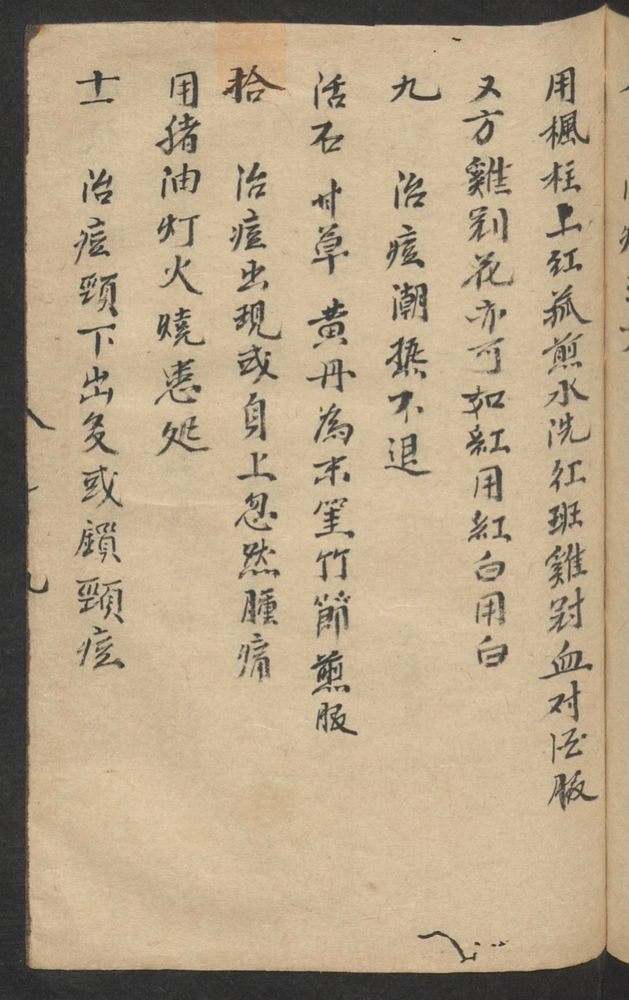 用楓柱上红菰煎水洗红班雞冠血对酒服
又方雞冠花亦可如紅用紅白用白
九　治痘潮热不退
活石甘草黄丹為末 竹節煎服
拾　治痘出現或身上忽然腫痛
用猪油灯火燒患处
十一　治痘頸下出多或鎖頸痘